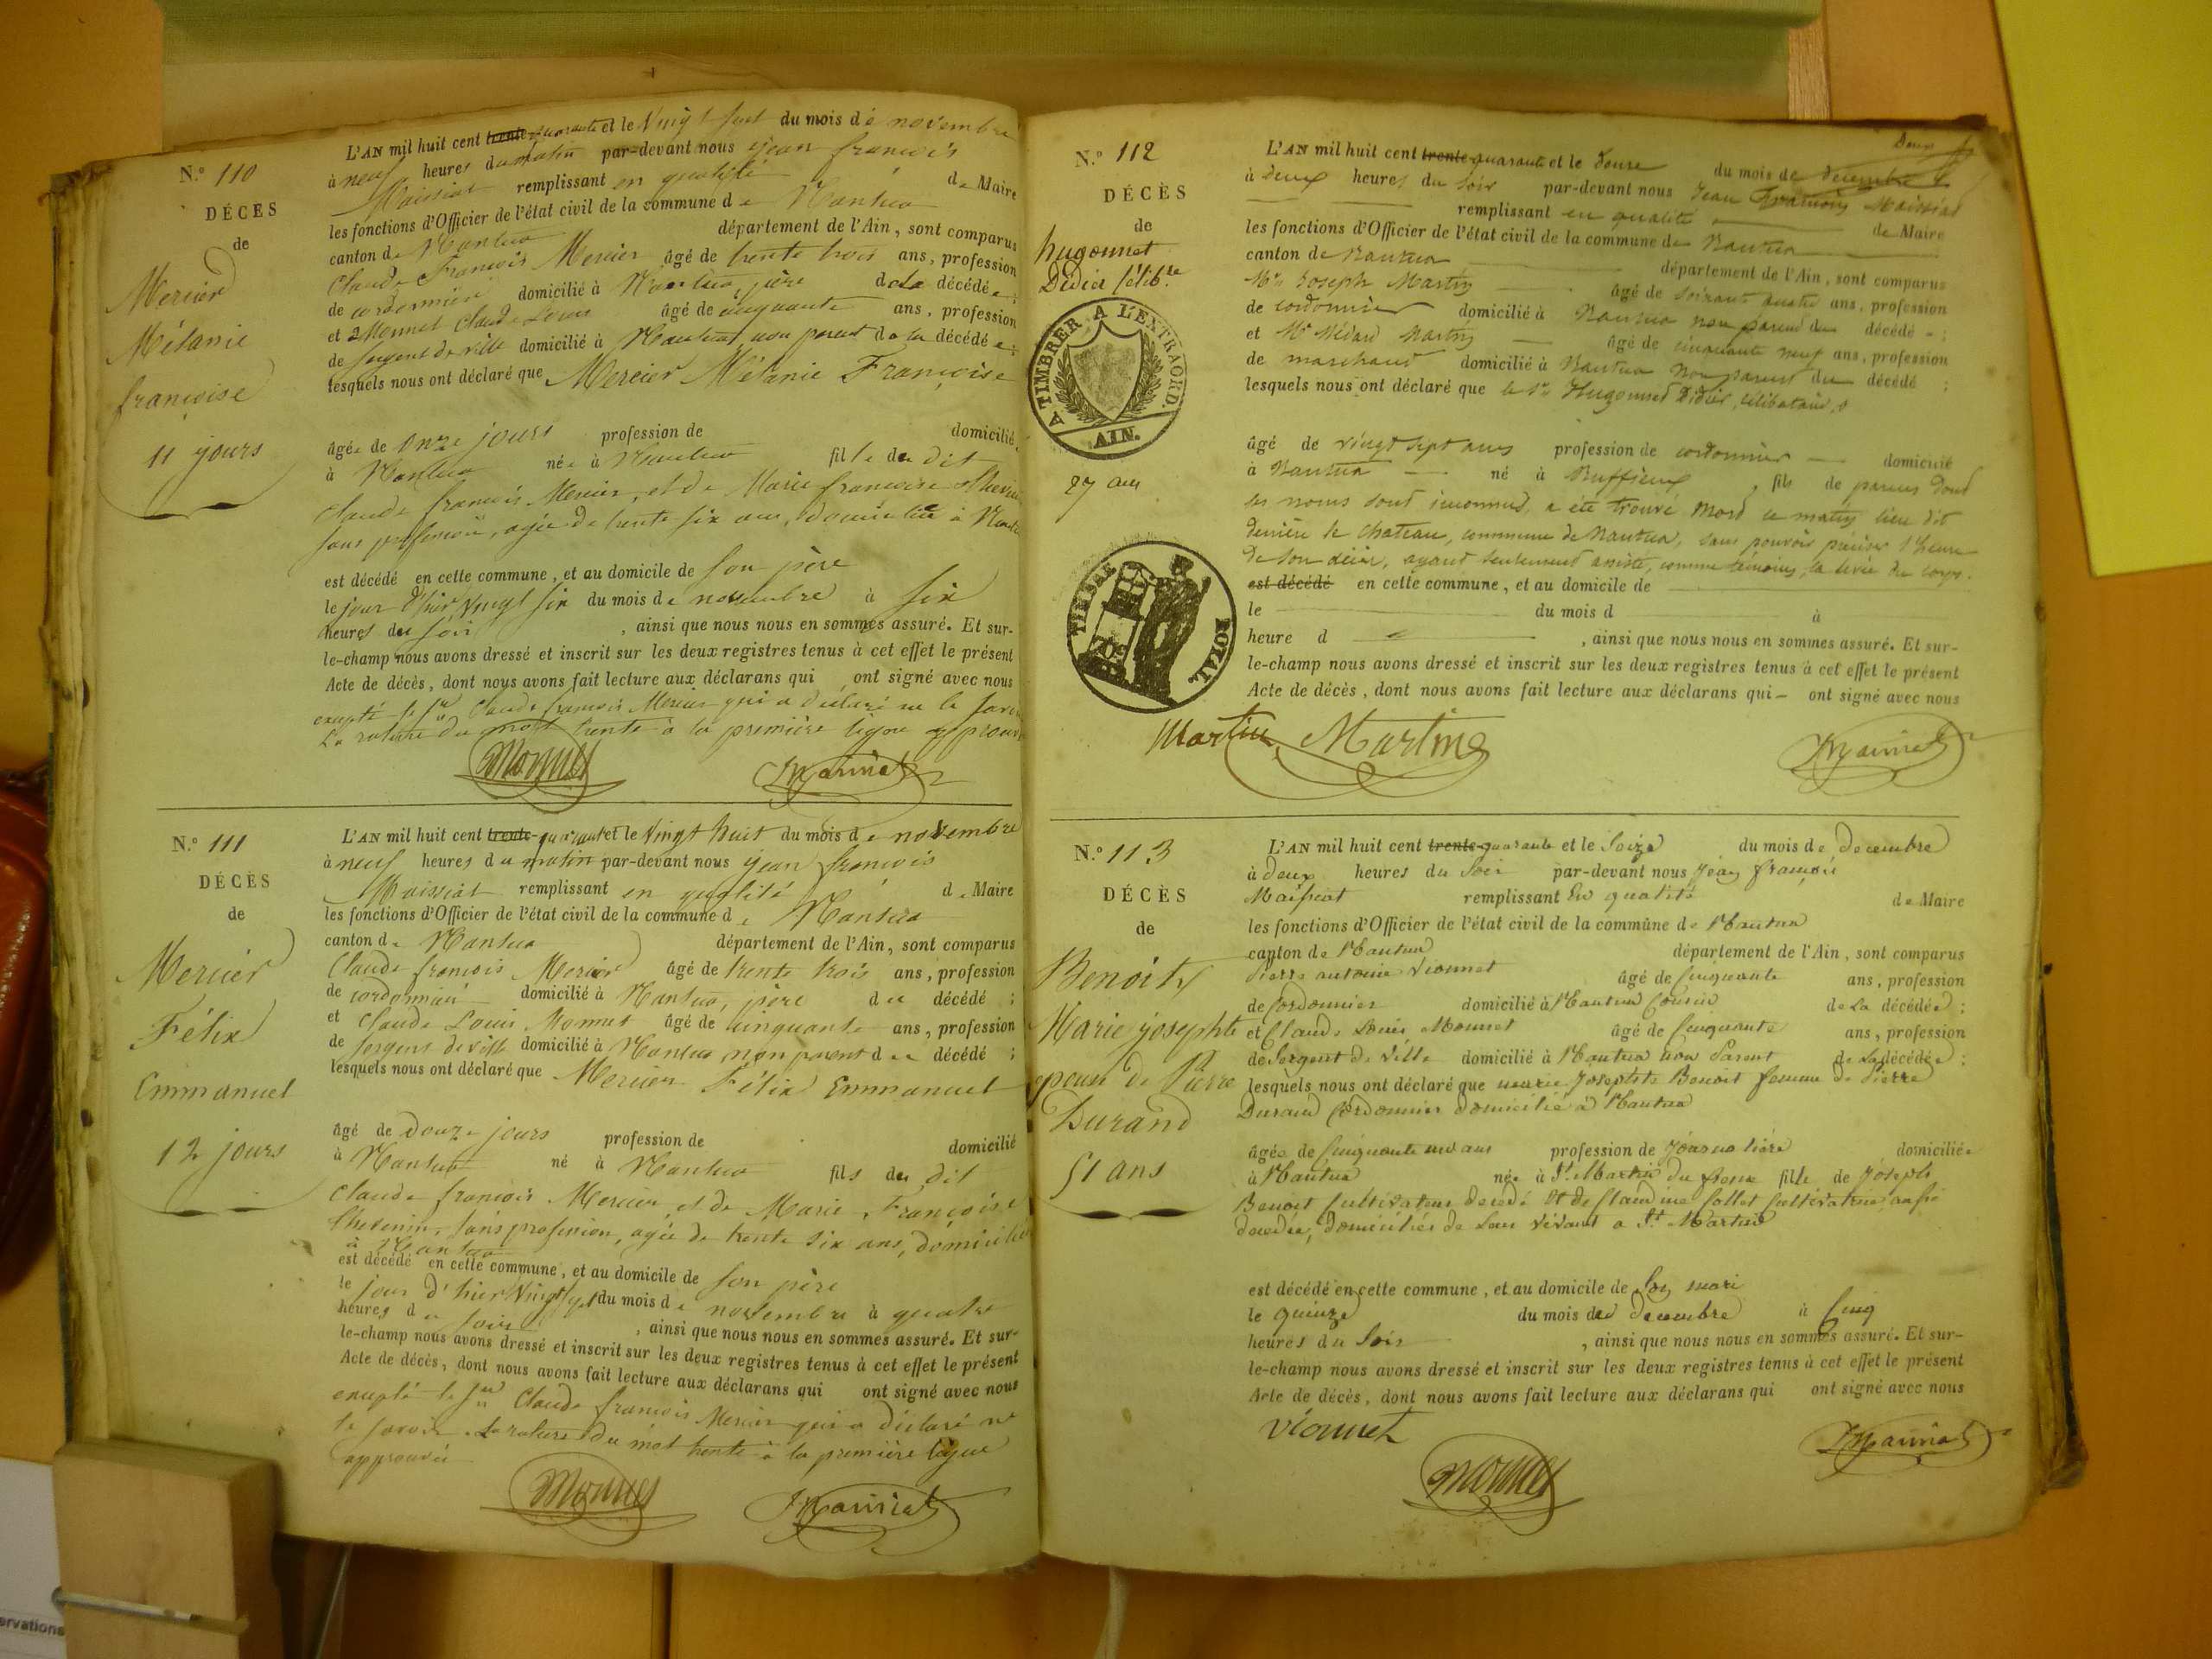 N.º 110
DÉCÈS
de
Mercier
Mélanie
françoise
11 jours
L'AN mil huit cent trente quarante et le Vingt sept du mois de novembre
à neuf heures du matin par-devant nous jean françois
Maissiat remplissant en qualité de Maire
les fonctions d'Officier de l'état civil de la commune de Nantua
canton de Nantua département de l'Ain, sont comparus
Claude François Mercier âgé de trente trois ans, profession
de cordonnier domicilié à Nantua, père de la décédée;
et Monnet Claude Louis âgé de cinquante ans, profession
de sergent de ville domicilié à Nantua, non parent de la décédée;
lesquels nous ont déclaré que Mercier Mélanie Françoise
âgée de Onze jours profession de domicilié
à Nantua née à Nantua fille du dit
Claude françois Mercier, et de Marie françoise
sans profession, agée de trente six ans, domiciliée à
est décédé en cette commune, et au domicile de son père
le jour d'hier vingt six du mois de novembre à six
heures du soir, ainsi que nous nous en sommes assuré. Et sur-
le-champ nous avons dressé et inscrit sur les deux registres tenus à cet effet le présent
Acte de décès, dont nous avons fait lecture aux déclarans qui ont signé avec nous
excepté le Claude françois Mercier qui a déclaré ne le savoir
La rature du mot trente à la première ligne
Monnet Maissiat
N.º 111
DÉCÈS
de
Mercier
Félix
Emmanuel
12 jours
L'AN mil huit cent trente quarante et le Vingt huit du mois de novembre
à neuf heures du matin par-devant nous jean françois
Maissiat remplissant en qualité de Maire
les fonctions d'Officier de l'état civil de la commune de Nantua
canton de Nantua département de l'Ain, sont comparus
Claude françois Mercier âgé de trente trois ans, profession
de cordonnier domicilié à Nantua, père du décédé;
et Claude Louis Monnet âgé de cinquante ans, profession
de sergent de ville domicilié à Nantua, non parent du décédé;
lesquels nous ont déclaré que Mercier Félix Emmanuel
âgé de douze jours profession de domicilié
à Nantua né à Nantua fils du dit
Claude françois Mercier, et de Marie Françoise
Thevenin, sans profession, agée de trente six ans, domiciliée
à Nantua
est décédé en cette commune, et au domicile de son père
le jour d'hier Vingt sept du mois de novembre à quatre
heures du soir, ainsi que nous nous en sommes assuré. Et sur-
le-champ nous avons dressé et inscrit sur les deux registres tenus à cet effet le présent
Acte de décès, dont nous avons fait lecture aux déclarans qui ont signé avec nous
excepté le Claude françois Mercier qui a déclaré ne
le savoir. La rature du mot trente à la première ligne
approuvée
Monnet Maissiat
N.º 112
DÉCÈS
de
hugonnet
Didier Célib.re
A TIMBRER A L'EXTRAORD.
AIN.
27 ans
TIMBRE ROYAL.
L'AN mil huit cent trente quarante et le douze du mois de décembre
à deux heures du soir par-devant nous Jean François Maissiat
remplissant en qualité de Maire
les fonctions d'Officier de l'état civil de la commune de Nantua
canton de Nantua département de l'Ain, sont comparus
Mr Joseph Martin âgé de soixante quatre ans, profession
de cordonnier domicilié à Nantua non parent du décédé;
et Mr Médard Martin âgé de cinquante neuf ans, profession
de marchand domicilié à Nantua non parent du décédé;
lesquels nous ont déclaré que le Sr Hugonnet Didier, célibataire,
âgé de vingt sept ans profession de cordonnier domicilié
à Nantua né à Ruffieux, fils de parens dont
les noms sont inconnus, a été trouvé mort ce matin lieu dit
derrière le chateau, commune de Nantua, sans pouvoir préciser l'heure
de son décès, ayant seulement assisté, comme témoins, la levée du corps.
est décédé en cette commune, et au domicile de
le du mois d à
heure d, ainsi que nous nous en sommes assuré. Et sur-
le-champ nous avons dressé et inscrit sur les deux registres tenus à cet effet le présent
Acte de décès, dont nous avons fait lecture aux déclarans qui ont signé avec nous
Martin Martin Maissiat
N.º 113
DÉCÈS
de
Benoit
Marie josephte
épouse de Pierre
Durand
51 ans
L'AN mil huit cent trente quarante et le Seize du mois de decembre
à deux heures du Soir par-devant nous Jean françois
Maissiat remplissant En qualité de Maire
les fonctions d'Officier de l'état civil de la commune de Nantua
canton de Nantua département de l'Ain, sont comparus
Pierre antoine Vionnet âgé de Cinquante ans, profession
de Cordonnier domicilié à Nantua Cousin de La décédée;
et Claude Louis Monnet âgé de Cinquante ans, profession
de Sergent de Ville domicilié à Nantua non Parent de La décédée;
lesquels nous ont déclaré que marie Josephte Benoit femme de Pierre
Durand Cordonnier domicilié à Nantua
âgée de Cinquante un ans profession de Journalière domiciliée
à Nantua née à St Martin du frene fille de Joseph
Benoit Cultivateur decedé Et de Claudine Collet Cultivatrice aussi
decedée, domiciliés de Leur Vivant a St Martin
est décédé en cette commune, et au domicile de Son mari
le quinze du mois de decembre à Cinq
heures du Soir, ainsi que nous nous en sommes assuré. Et sur-
le-champ nous avons dressé et inscrit sur les deux registres tenus à cet effet le présent
Acte de décès, dont nous avons fait lecture aux déclarans qui ont signé avec nous
Vionnet Monnet Maissiat